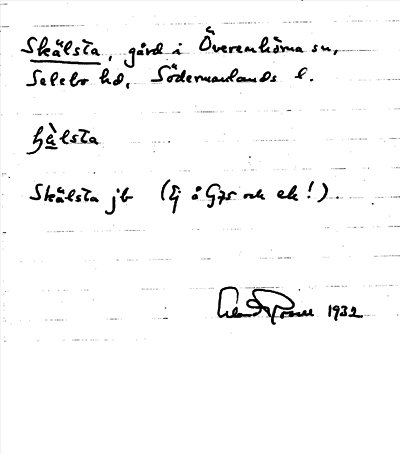 Skälsta, gård i Överenhörna sn,
Selebo hd, Södermanlands l.
hä̀lsta
Skälsta jb (Ej å G75 och ek!).
1932